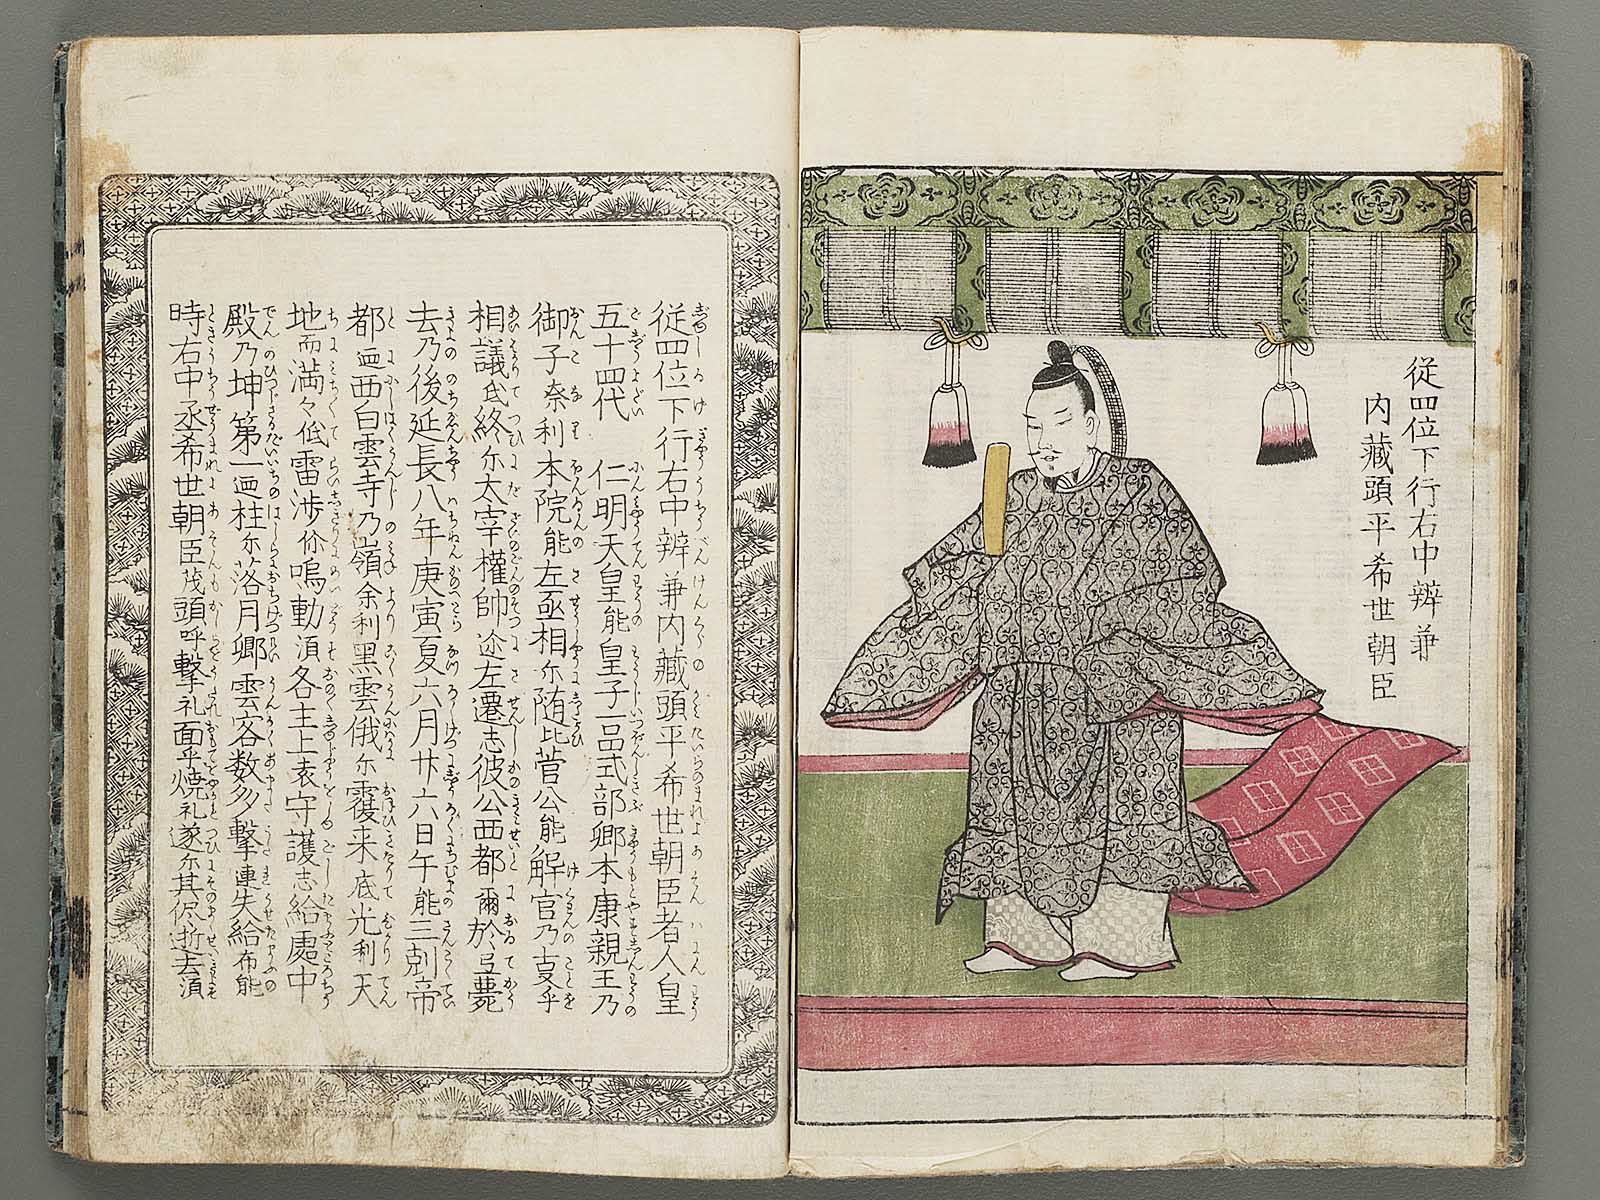 従四位下行右中辨兼
内藏頭平希世朝臣
従四位下行右中辨兼内藏頭平希世朝臣者人皇
五十四代 仁明天皇能皇子一品式部卿本康親王乃
御子奈利本院能左丞相尓随比菅公能解官乃叓乎
相議氐終尓太宰權帥迩左遷志彼公西都爾於弖薨
去乃後延長八年庚寅夏六月廿六日午能三剋帝
都迺西白雲寺乃嶺余利黑雲俄尓覆来底光利天
地而満々低雷渉
鳴動須各主上袁守護志給處中
殿乃坤第一迺柱尓落月卿雲客数多擊
失給布能
時右中丞希世朝臣茂頭
擊礼面乎燒礼遂尓其
逝去須